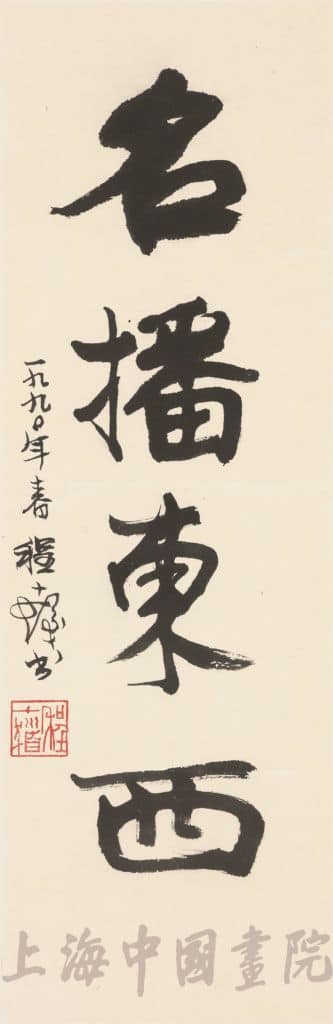 名播東西
一九九〇年春 程十髮書
上海中國畫院